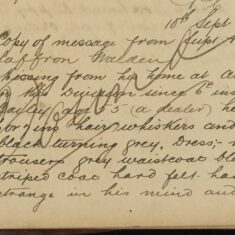 10th Sept
Copy of message from Supt
Saffron Walden
Missing from his home at
in this Division since 6th ins
Bailey age 55 (a dealer) he
5 ins hair whiskers and
black turning grey. Dress:-
trousers grey waistcoat bl
striped coat hard felt ha
strange in his mind and